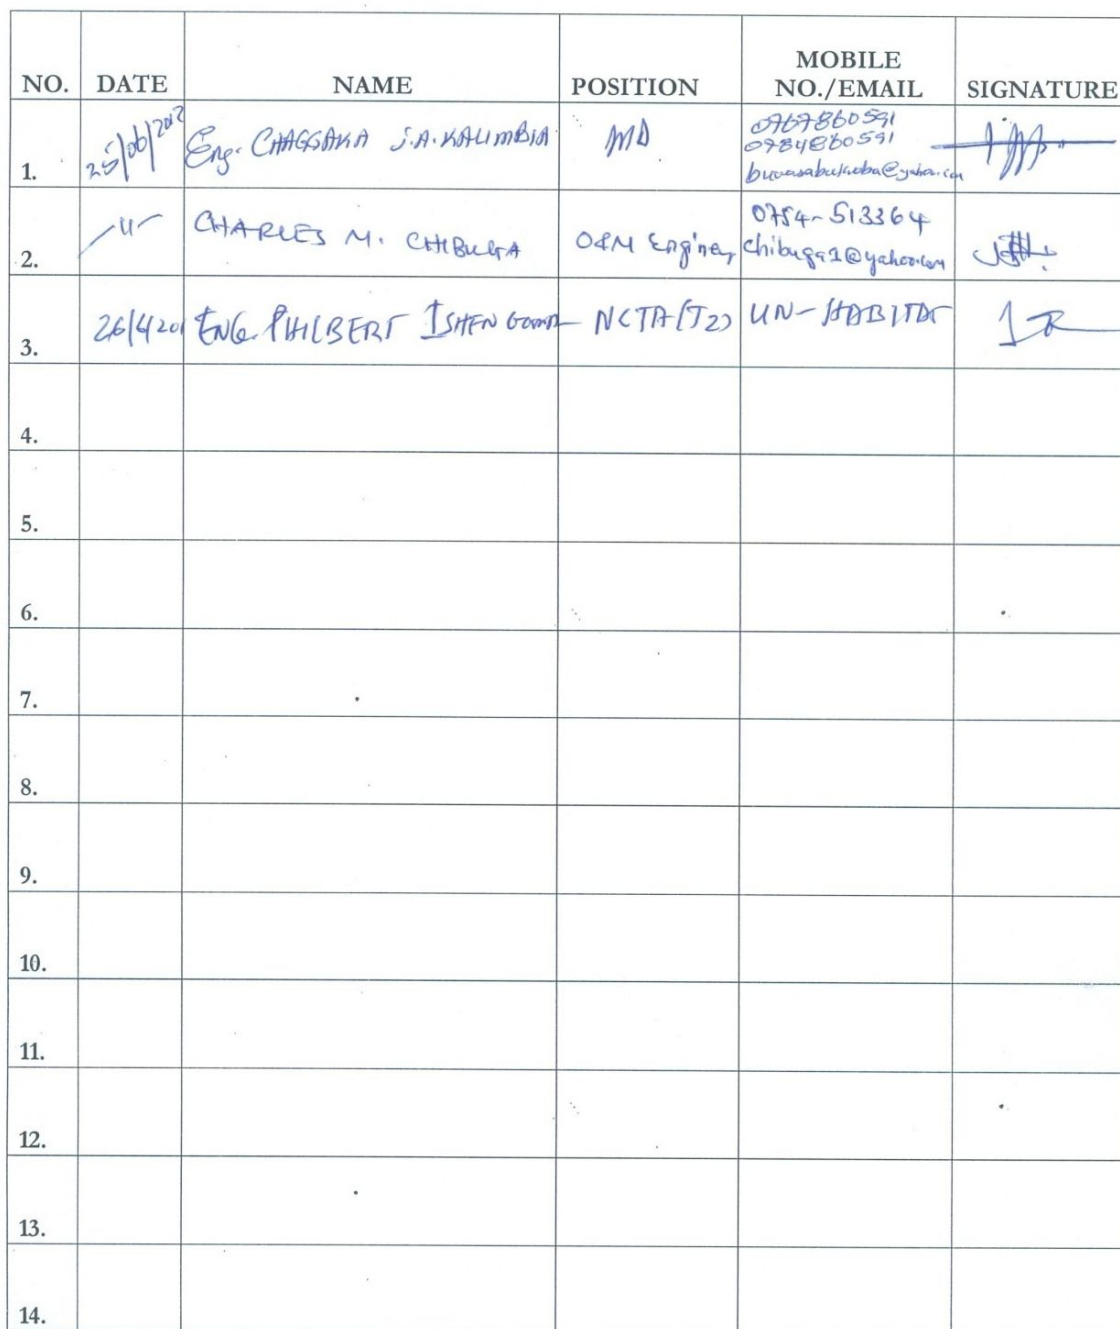 NO. DATE NAME POSITION MOBILE NO./EMAIL SIGNATURE
1. 25/06/2012 Eng. CHAGGAKA J.A. KALIMBIA MD 0767860591
0784860591
buwasabukoba@yahoo.com
2. -"- CHARLES M. CHIBUGA O&M Engineer 0754-513364
chibuga2@yahoo.com
3. 26/6/201 ENG. PHILBERT ISHENGOMA NCTA(T2) UN-HABITAT
4.
5.
6.
7.
8.
9.
10.
11.
12.
13.
14.